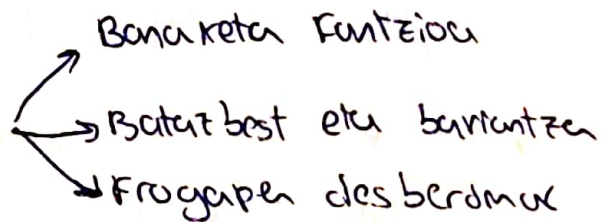 Banaketa Funtzioa
Batazbest eta bariantza
Frogapen desberdinak